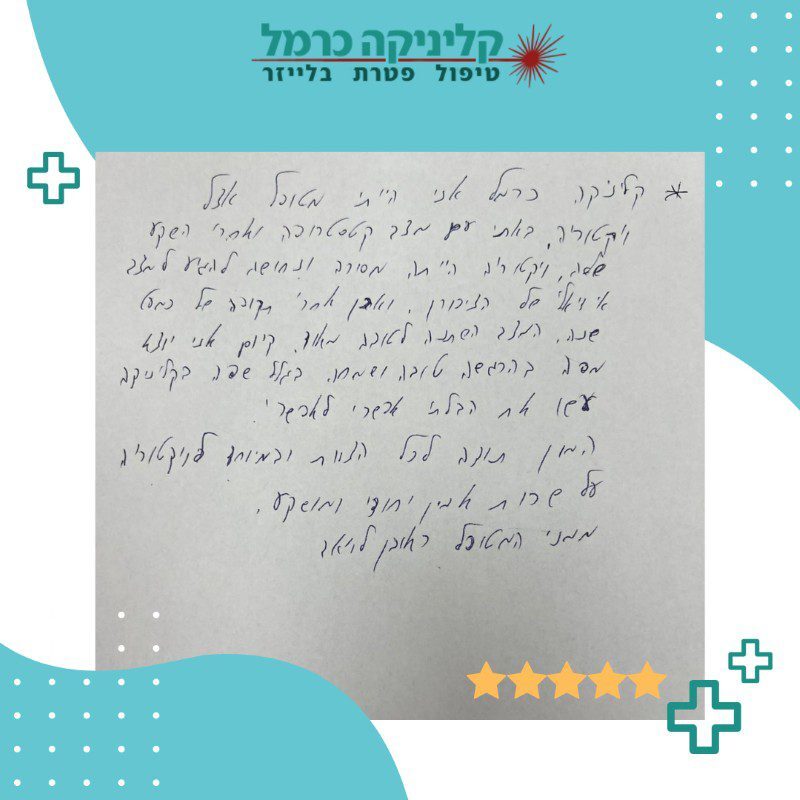 קליניקה כרמל
טיפול פטרת בלייזר
* קליניקה כרמל אני הייתי מטופל אצל
ויקטוריה, באתי עם מצב קטסטרופה ואחרי השקע
שלה, ויקטוריה הייתה מסורה ונחושה להגיע למצב
אידיאלי של הציפורן. ואכן אחרי תקופה של כמעט
שנה, המצב השתנה לטובה מאוד, קיום אני יוצא
מפה בהרגשה טובה ושמחה. בגלל שפה בקליניקה
עשו את הבלתי אפשרי לאפשרי!
המון תודה לכל הצוות ובמיוחד לויקטוריה
על שרות אמין יחודי ומושקע.
ממני המטופל ראובן